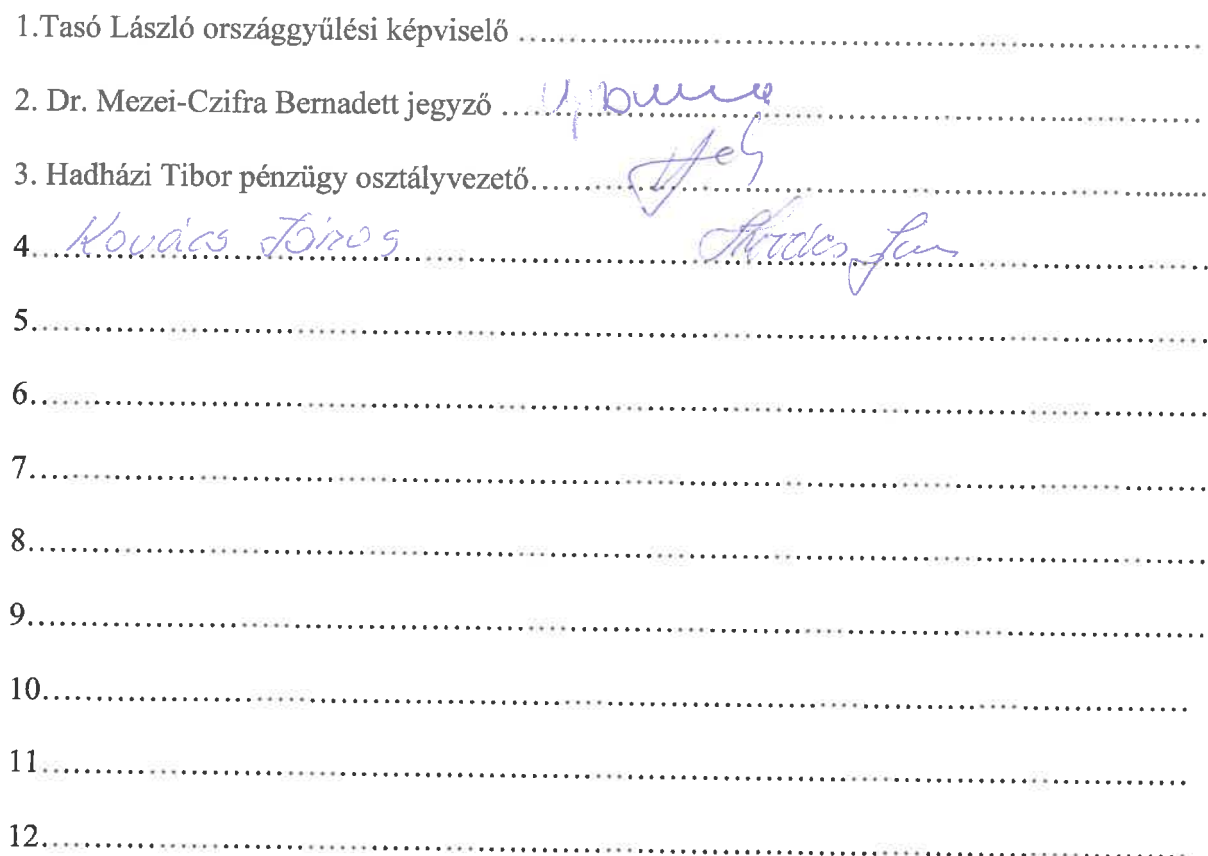 1.Tasó László országgyűlési képviselő ........................................
2. Dr. Mezei-Czifra Bernadett jegyző ........................................
3. Hadházi Tibor pénzügy osztályvezető........................................
4. Kovács János Kovács
5........................................
6........................................
7........................................
8........................................
9........................................
10........................................
11........................................
12........................................